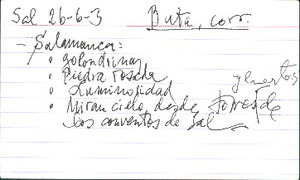 Sal 26-6-3 Buta, corr.
- Salamanca:
• golondrinas
• Piedra tosca
• Luminosidad
• Miran cielo desde torres de
los conventos de Sal